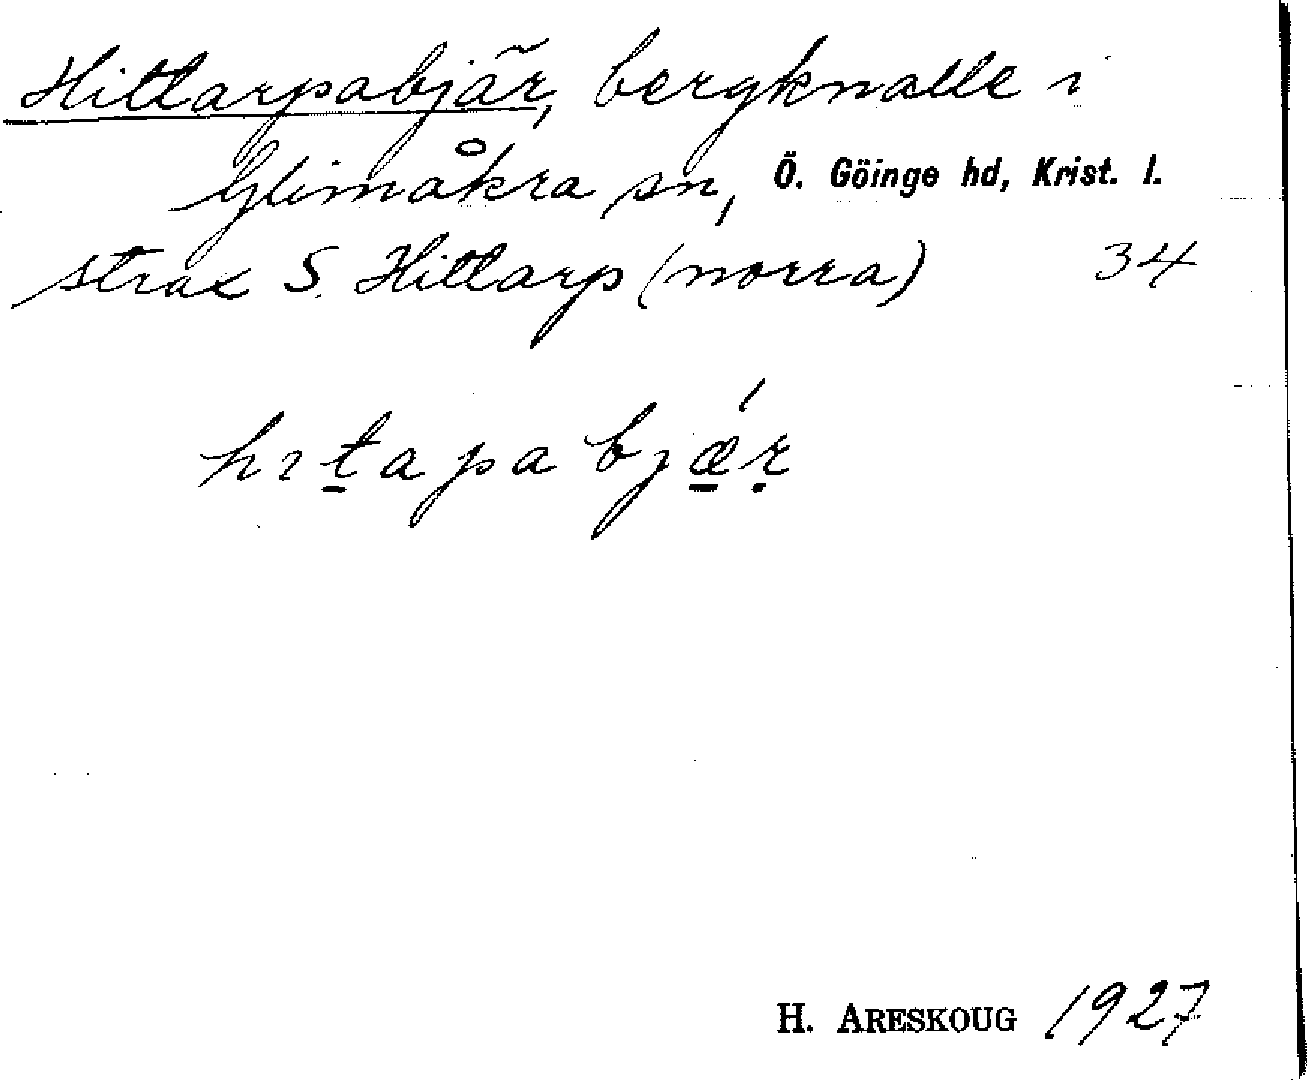 Hittarpabjär, bergknalle i
Glimåkra sn, Ö. Göinge hd, Krist. l.
strax S. Hittarp (norra) 34
hıt̠apabjǽ̠ṛ
H. ARESKOUG 1927